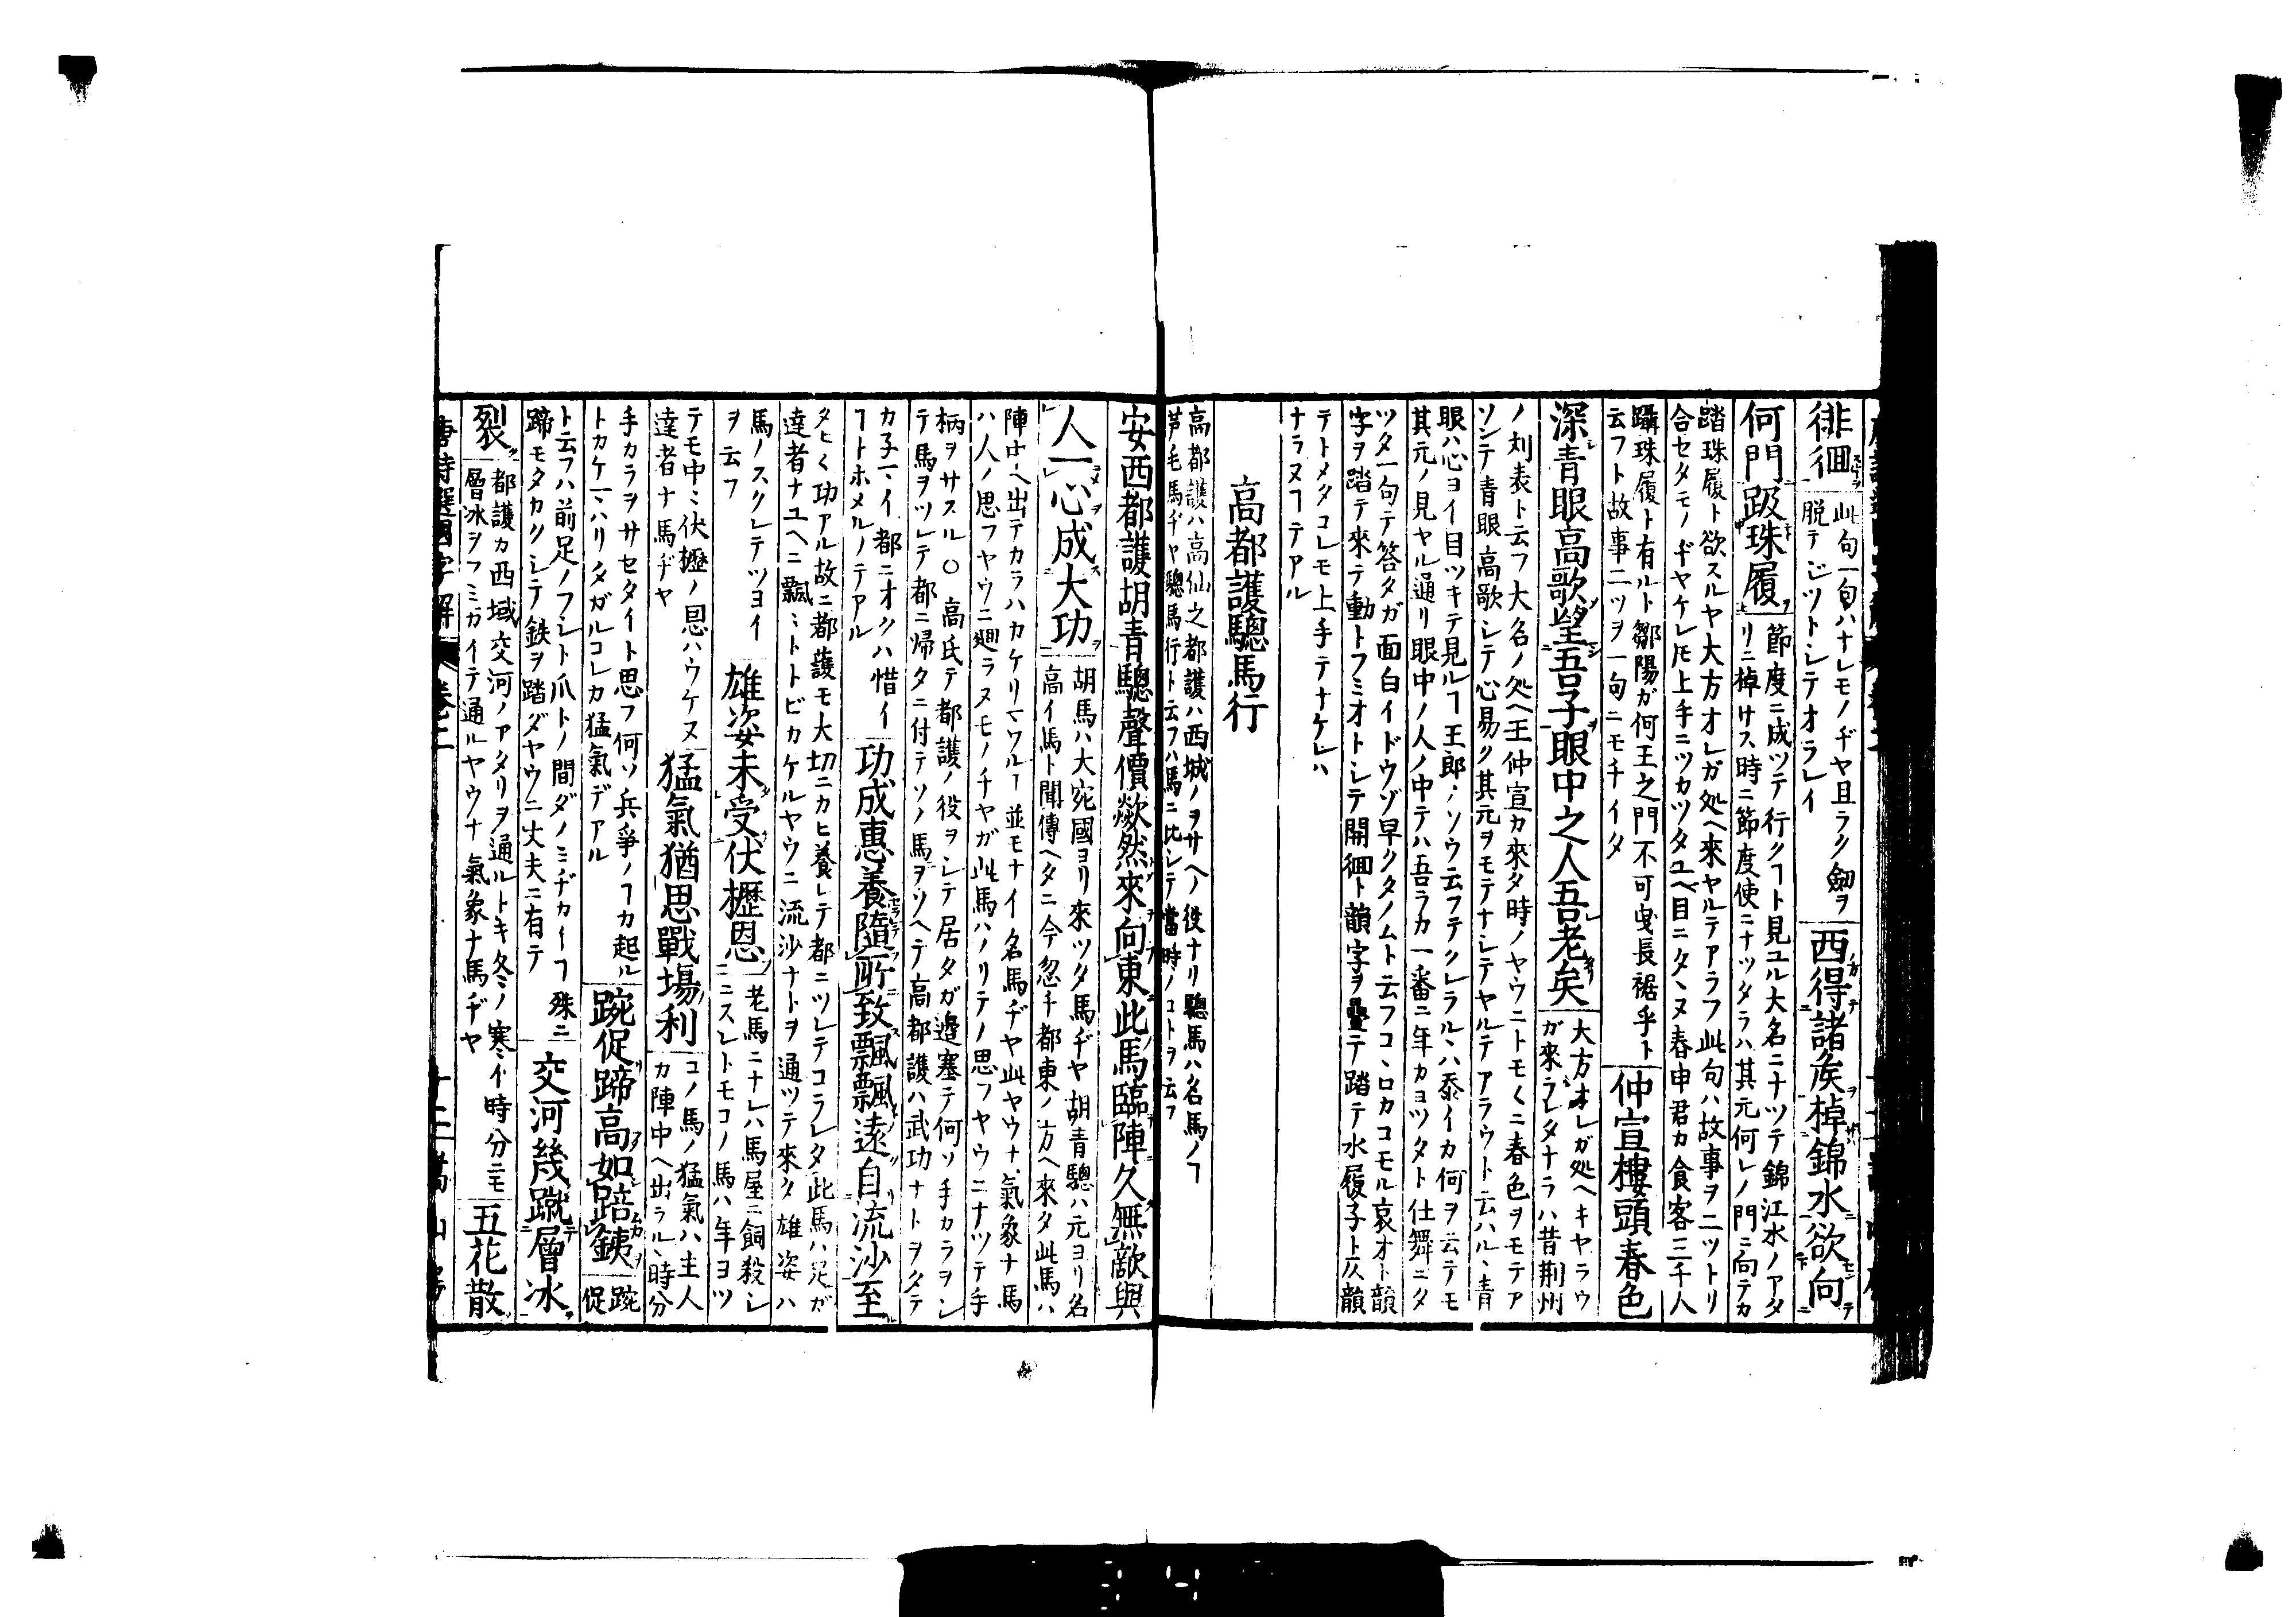 徘徊
此句一句ハナレモノヂヤ且ラク劔ヲ
脱テジツトシテオラレイ
西得諸矦棹錦水欲向
何門趿珠履
節度ニ成ツテ行クヿト見ユル大名ニナツテ錦江水ノアタ
リニ棹サス時ニ節度使ニナツタラハ其元何レノ門ニ向テカ
踏珠履ト欲スルヤ大方オレガ処ヘ來ヤルテアラフ此句ハ故事ヲ二ツトリ
合セタモノヂヤケレ𪜈上手ニツカツタユヘ目ニタヽヌ春申君カ食客三千人
躡珠履ト有ルト鄒陽ガ何王之門不可曳長裾乎ト
云フト故事二ツヲ一句ニモチイタ
仲宣樓頭春色
深青眼高歌望吾子眼中之人吾老矣
大方オレガ処ヘキヤラウ
ガ來ラレタナラハ昔荆州
ノ刘表ト云フ大名ノ処ヘ王仲宣カ來タ時ノヤウニトモ〱ニ春色ヲモテア
ソンテ青眼高歌シテ心易ク其元ヲモテナシテヤルテアラウト云ハルヽ青
眼ハ心ヨイ目ツキテ見ルヿ王郎ソウ云フテクレラルヽハ忝イカ何ヲ云テモ
其元ノ見ヤル通リ眼中ノ人ノ中テハ吾ラカ一番ニ年カヨツタト仕舞ニタ
ツタ一句テ答タガ面白イドウゾ早クタノムト云フコヽロカコモル哀オト韻
字ヲ踏テ來テ動トフミオトシテ開徊ト韻字ヲ疊テ踏テ水履子ト仄韻
テトメタコレモ上手テナケレハ
ナラヌヿテアル
高都護驄馬行
高都護ハ高仙之都護ハ西城ノヲサヘノ役ナリ驄馬ハ名馬ノヿ
芦毛馬ヂヤ驄馬行ト云フハ馬ニ比シテ當時ノコトヲ云フ
安西都護胡青驄聲價欻然來向東此馬臨陣久無敵與
人一心成大功
胡馬ハ大宛國ヨリ來ツタ馬ヂヤ胡青驄ハ元ヨリ名
高イ馬ト聞傳ヘタニ今忽チ都東ノ方ヘ來タ此馬ハ
陣中ヘ出テカラハカケリマワルヿ並モナイ名馬ヂヤ此ヤウナ氣象ナ馬
ハ人ノ思フヤウニ廻ラヌモノチヤガ此馬ハノリテノ思フヤウニナツテ手
柄ヲサスル○高氏テ都護ノ役ヲシテ居タガ邊塞テ何ソ手カラヲシ
テ馬ヲツレテ都ニ帰タニ付テソノ馬ヲソヘテ高都護ハ武功ナトヲタテ
カ子マイ都ニオクハ惜イ
ヿトホメルノテアル
功成惠養隨所致飄飄遠自流沙至
タヒ〱功アル故ニ都護モ大切ニカヒ養レテ都ニツレテコラレタ此馬ハ足ガ
達者ナユヘニ飄ミトトビカケルヤウニ流沙ナトヲ通ツテ來タ雄姿ハ
馬ノスクレテツヨイ
ヲ云フ
雄姿未受伏櫪恩
老馬ニナレハ馬屋ニ飼殺シ
ニスレトモコノ馬ハ年ヨツ
テモ中ミ伏櫪ノ恩ハウケヌ
達者ナ馬ヂヤ
猛氣猶思戰塲利
コノ馬ノ猛氣ハ主人
カ陣中ヘ出ラルヽ時分
手カラヲサセタイト思フ何ソ兵爭ノヿカ起ル
トカケマハリタガルコレカ猛氣デアル
踠促蹄高如踣銕
踠促
ト云フハ前足ノフシト爪トノ間ダノミヂカイヿ殊ニ
蹄モタカクシテ鉄ヲ踏ダヤウニ丈夫ニ有テ
交河幾蹴層冰
裂
都護カ西域交河ノアタリヲ通ルトキ冬ノ寒イ時分ニモ
層冰ヲフミカイテ通ルヤウナ氣象ナ馬ヂヤ
五花散
唐詩選國字解 卷二